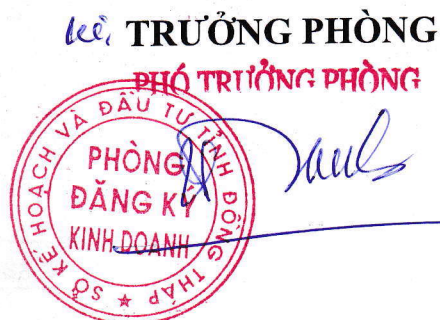 KT. TRƯỞNG PHÒNG
PHÓ TRƯỞNG PHÒNG
SỞ KẾ HOẠCH VÀ ĐẦU TƯ TỈNH ĐỒNG THÁP
PHÒNG
ĐĂNG KÝ
KINH DOANH